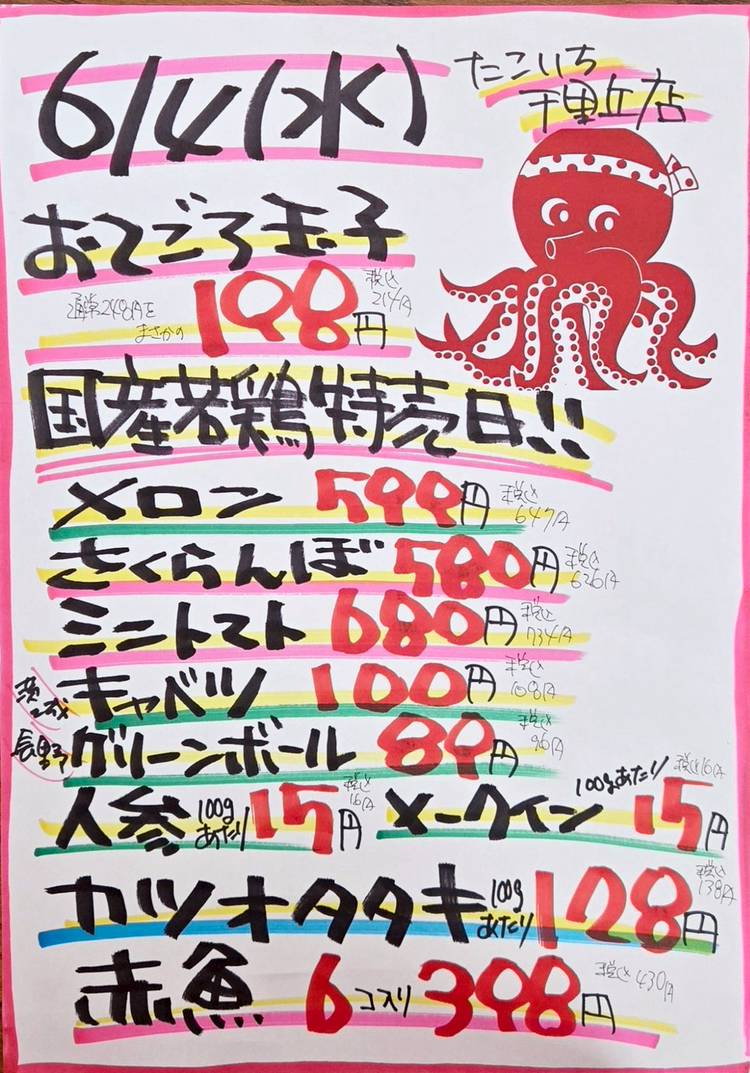 6/4(水)
たこいち
千里丘店
おてごろ玉子
通常248円を
まさかの
198円
税込
214円
国産若鶏特売日!!
メロン 599円 税込 647円
さくらんぼ 580円 税込 626円
ミニトマト 680円 税込 734円
茨城 キャベツ 100円 税込 108円
長野 グリーンボール 89円 税込 96円
人参 100gあたり 15円 税込 16円
メークイン 100gあたり 15円 税込16円
カツオタタキ 100gあたり 128円 税込 138円
赤魚 6コ入り 398円 税込 430円